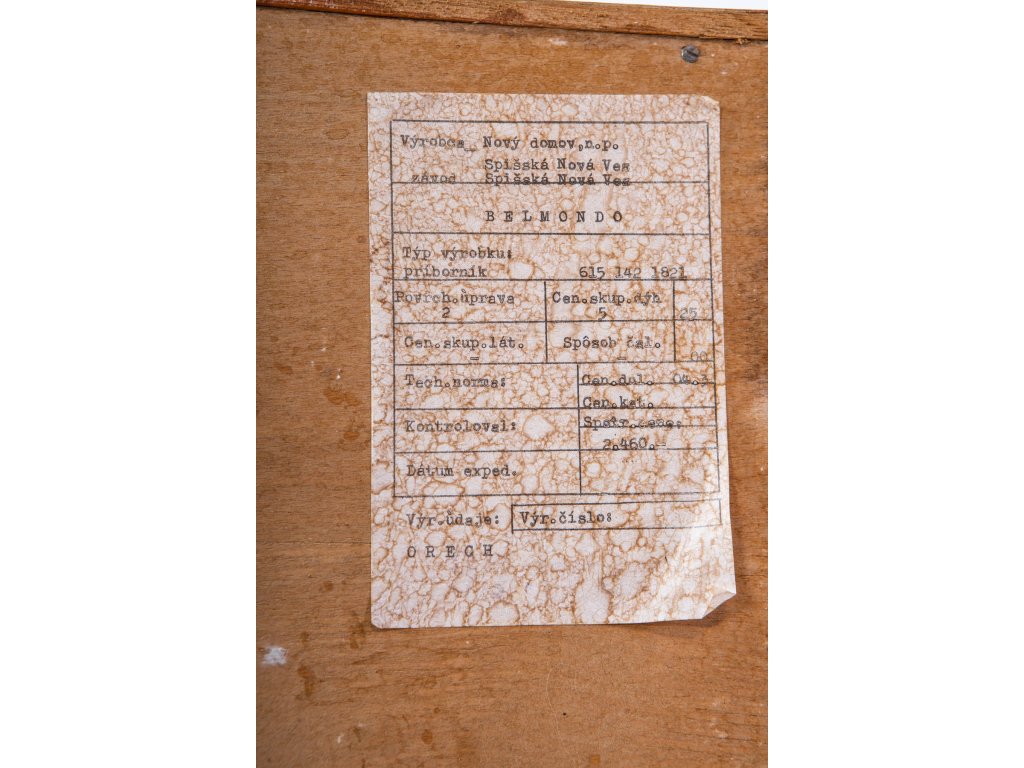 Výrobca Nový domov,n.p.
Spišská Nová Ves
závod Spišská Nová Ves
BELMONDO
Typ výrobku:
príborník 615 142 1821
Povrch.úprava Cen.skup.dýh
2 5 25
Cen.skup.lát. Spôsob čal.
– – 00
Tech.norma: Cen.dal. 04.3
Cen.kat.
Kontroloval: Spotr.cena:
2.460.–
Dátum exped.
Výr.údaje: Výr.číslo:
ORECH